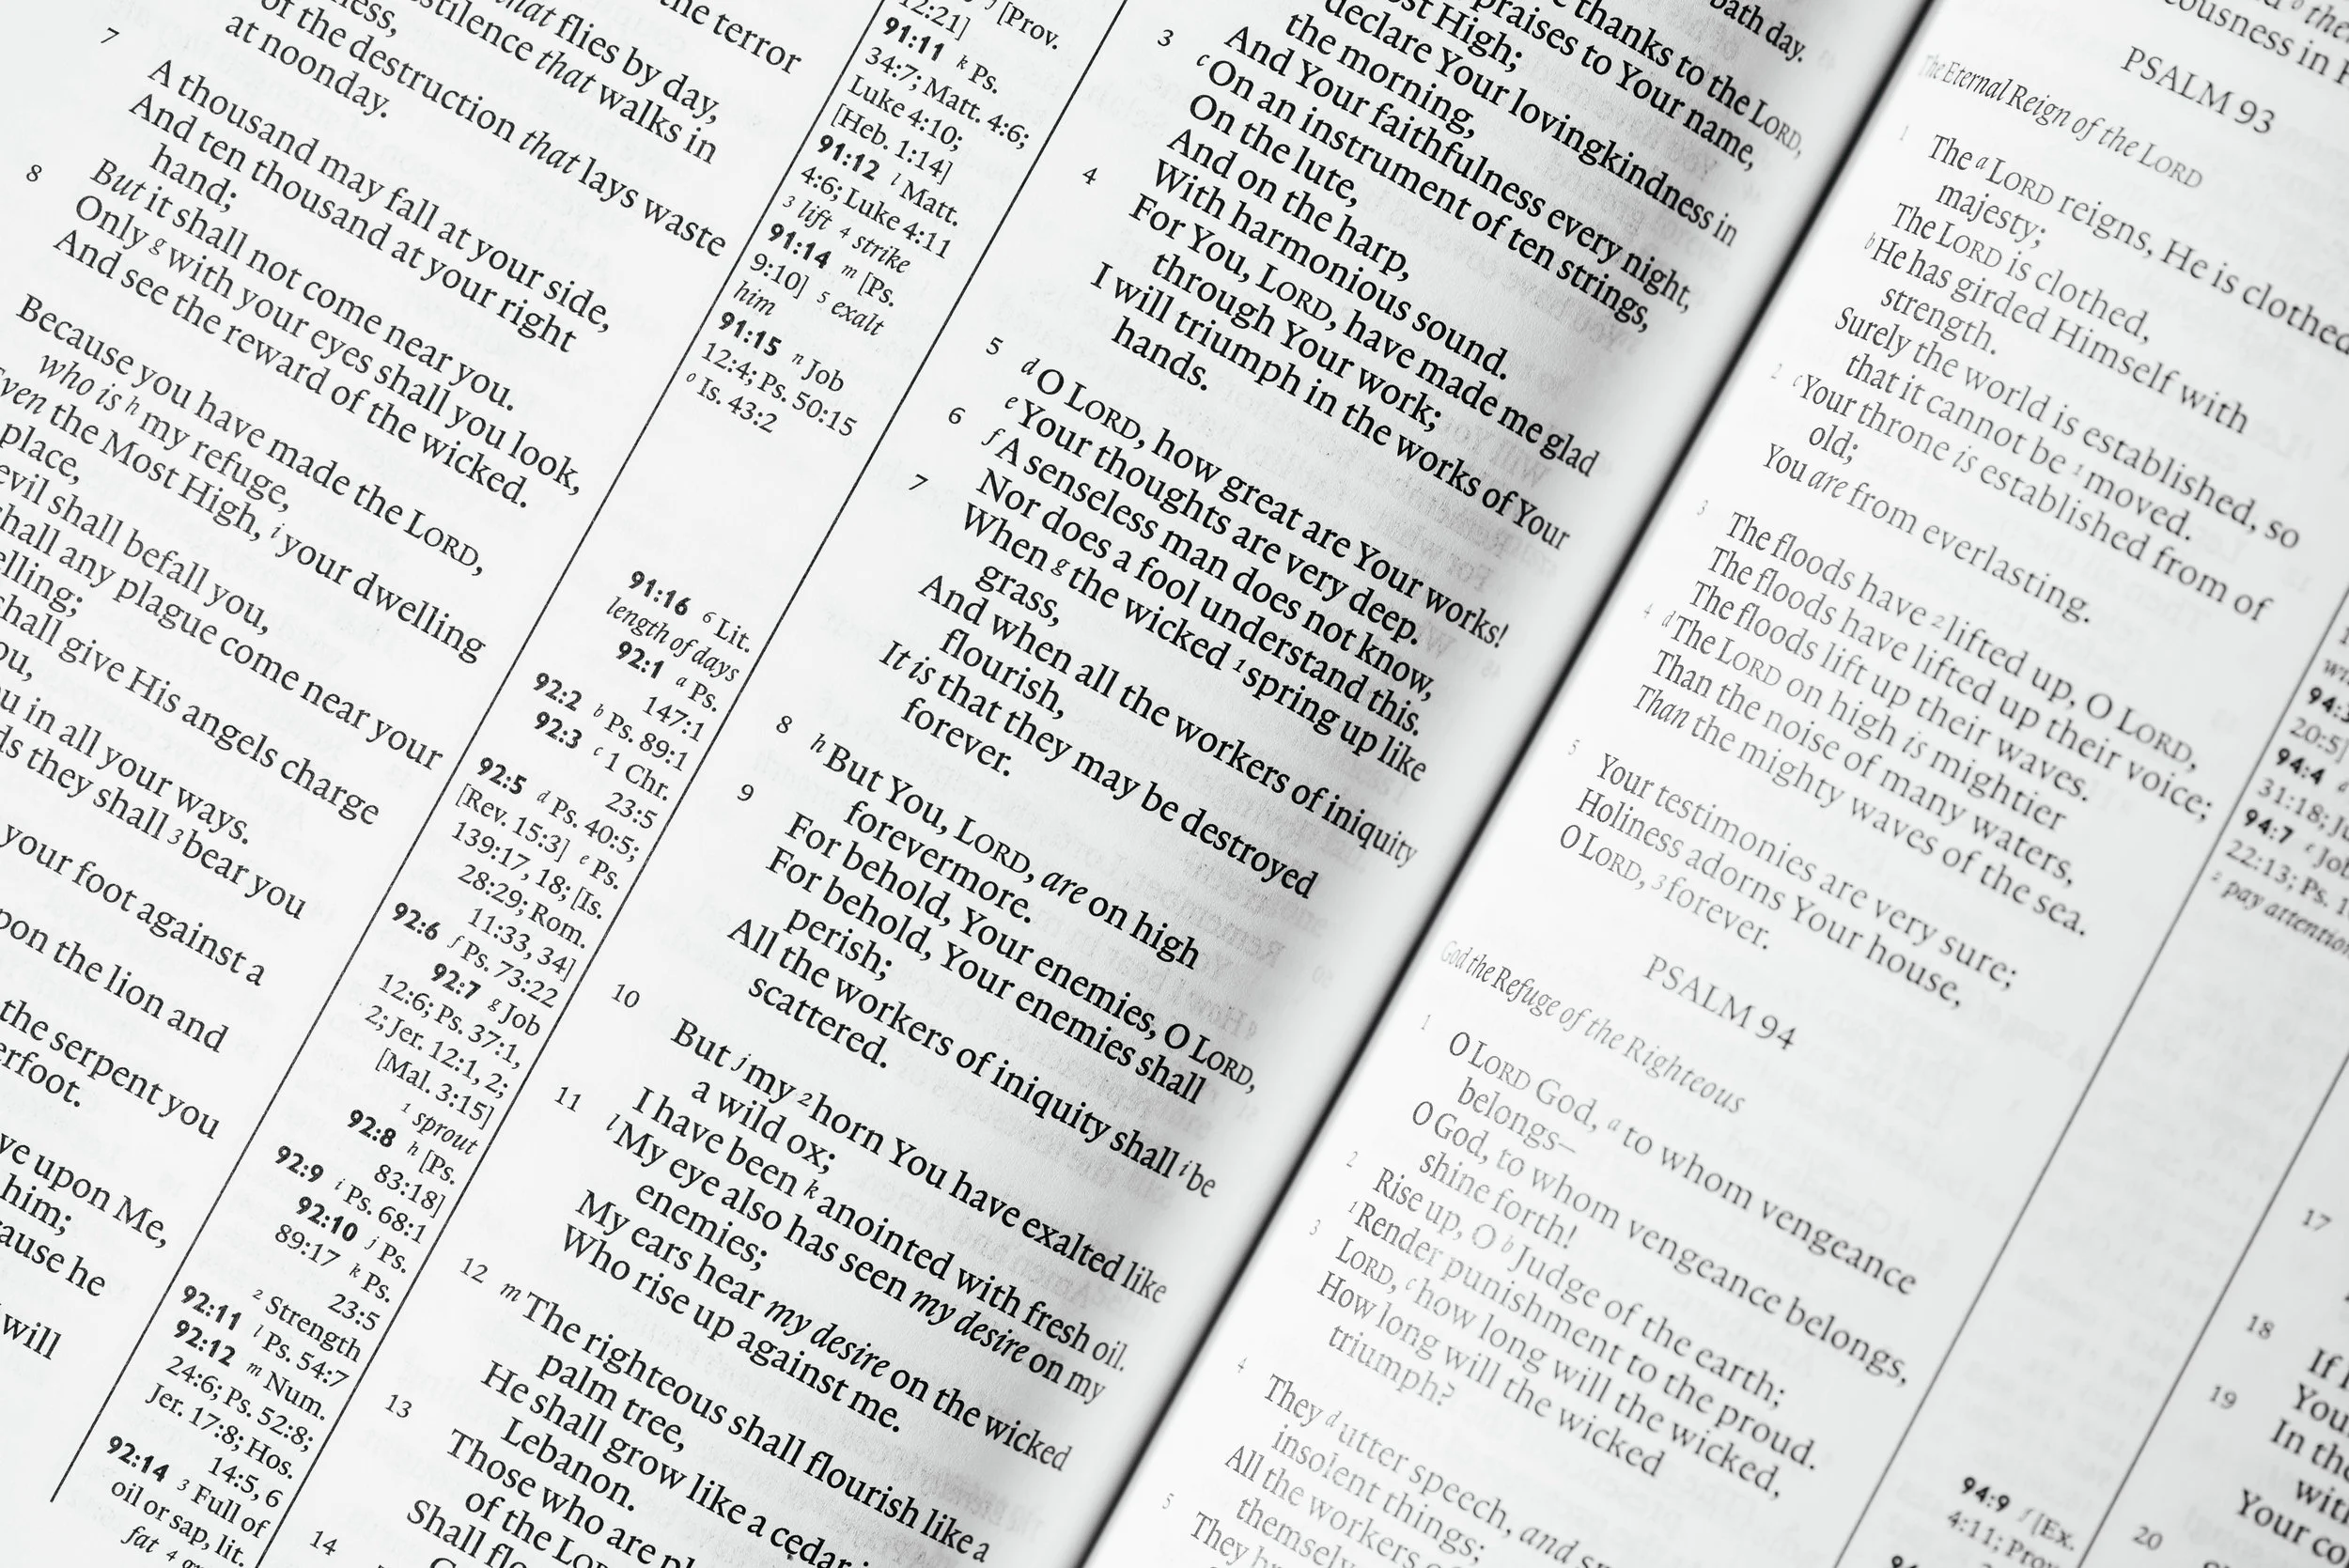 the terror
that flies by day,
that walks in
of the destruction that lays waste
at noonday.
7
A thousand may fall at your side,
And ten thousand at your right
hand;
8 But it shall not come near you.
Only g with your eyes shall you look,
And see the reward of the wicked.
Because you have made the LORD,
who is h my refuge,
the Most High, i your dwelling
place,
evil shall befall you,
any plague come near your
shall give His angels charge
in all your ways.
they shall 3 bear you
your foot against a
the lion and
the serpent you
upon Me,
him;
he
will
12:21] [Prov.
91:11 k Ps.
34:7; Matt. 4:6;
Luke 4:10;
[Heb. 1:14]
91:12 l Matt.
4:6; Luke 4:11
3 lift 4 strike
91:14 m [Ps.
9:10] 5 exalt
him
91:15 n Job
12:4; Ps. 50:15
o Is. 43:2
91:16 6 Lit.
length of days
92:1 a Ps.
147:1
92:2 b Ps. 89:1
92:3 c 1 Chr.
23:5
92:5 d Ps. 40:5;
[Rev. 15:3] e Ps.
139:17, 18; [Is.
28:29; Rom.
11:33, 34]
92:6 f Ps. 73:22
92:7 g Job
12:6; Ps. 37:1,
2; Jer. 12:1, 2;
[Mal. 3:15]
1 sprout
92:8 h [Ps.
83:18]
92:9 i Ps. 68:1
92:10 j Ps.
89:17 k Ps.
23:5
2 Strength
92:11 l Ps. 54:7
92:12 m Num.
24:6; Ps. 52:8;
Jer. 17:8; Hos.
14:5, 6
92:14 3 Full of
oil or sap, lit.
fat 4
day.
thanks to the LORD,
praises to Your name,
Most High;
declare Your lovingkindness in
the morning,
And Your faithfulness every night,
3 c On an instrument of ten strings,
On the lute,
And on the harp,
With harmonious sound.
4 For You, LORD, have made me glad
through Your work;
I will triumph in the works of Your
hands.
5 d O LORD, how great are Your works!
e Your thoughts are very deep.
6 f A senseless man does not know,
Nor does a fool understand this.
7 When g the wicked 1 spring up like
grass,
And when all the workers of iniquity
flourish,
It is that they may be destroyed
forever.
8 h But You, LORD, are on high
forevermore.
9 For behold, Your enemies, O LORD,
For behold, Your enemies shall
perish;
All the workers of iniquity shall i be
scattered.
10 But j my 2 horn You have exalted like
a wild ox;
I have been k anointed with fresh oil.
11 l My eye also has seen my desire on my
enemies;
My ears hear my desire on the wicked
Who rise up against me.
12 m The righteous shall flourish like a
palm tree,
He shall grow like a cedar
Lebanon.
13 Those who are
of the LORD
Shall
14
PSALM 93
The Eternal Reign of the LORD
1 The a LORD reigns, He is clothed
majesty;
The LORD is clothed,
b He has girded Himself with
strength.
Surely the world is established, so
that it cannot be 1 moved.
2 c Your throne is established from of
old;
You are from everlasting.
3 The floods have 2 lifted up, O LORD,
The floods have lifted up their voice;
The floods lift up their waves.
4 d The LORD on high is mightier
Than the noise of many waters,
Than the mighty waves of the sea.
5 Your testimonies are very sure;
Holiness adorns Your house,
O LORD, 3 forever.
PSALM 94
God the Refuge of the Righteous
1 O LORD God, a to whom vengeance
belongs—
O God, to whom vengeance belongs,
shine forth!
2 Rise up, O b Judge of the earth;
1 Render punishment to the proud.
3 LORD, c how long will the wicked,
How long will the wicked
triumph?
4 They d utter speech, and
insolent things;
All the workers
5 They
20:5]
94:4
31:18;
94:7
22:13; Ps.
2 pay attention
94:9 f [Ex.
4:11; Prov.
17
18
If
19
In the
Your
20